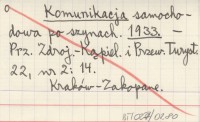 Komunikacja samocho-
dowa po szynach. 1933. —
Prz. Zdroj.-Kąpiel. i Przew. Turyst.
22, nr 2: 14.
Kraków-Zakopane.